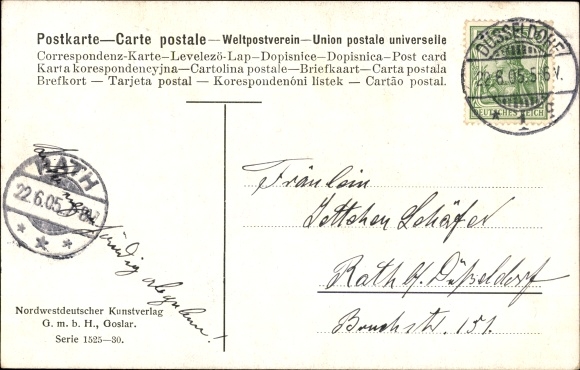 Postkarte—Carte postale—Weltpostverein—Union postale universelle
Correspondenz-Karte—Levelező-Lap—Dopisnice—Dopisnica—Post card
Karta korespondencyjna—Cartolina postale—Briefkaart—Carta postala
Brefkort — Tarjeta postal — Korespondenční listek — Cartão postal.
DÜSSELDORF
22.6.05.5-6V.
* 1 E
DEUTSCHES REICH
RATH
22.6.05
* * *
Fräulein
Jettchen Schäfer
Rath b/ Düßeldorf
Bruchstr. 151.
Nordwestdeutscher Kunstverlag
G. m. b. H., Goslar.
Serie 1525—30.